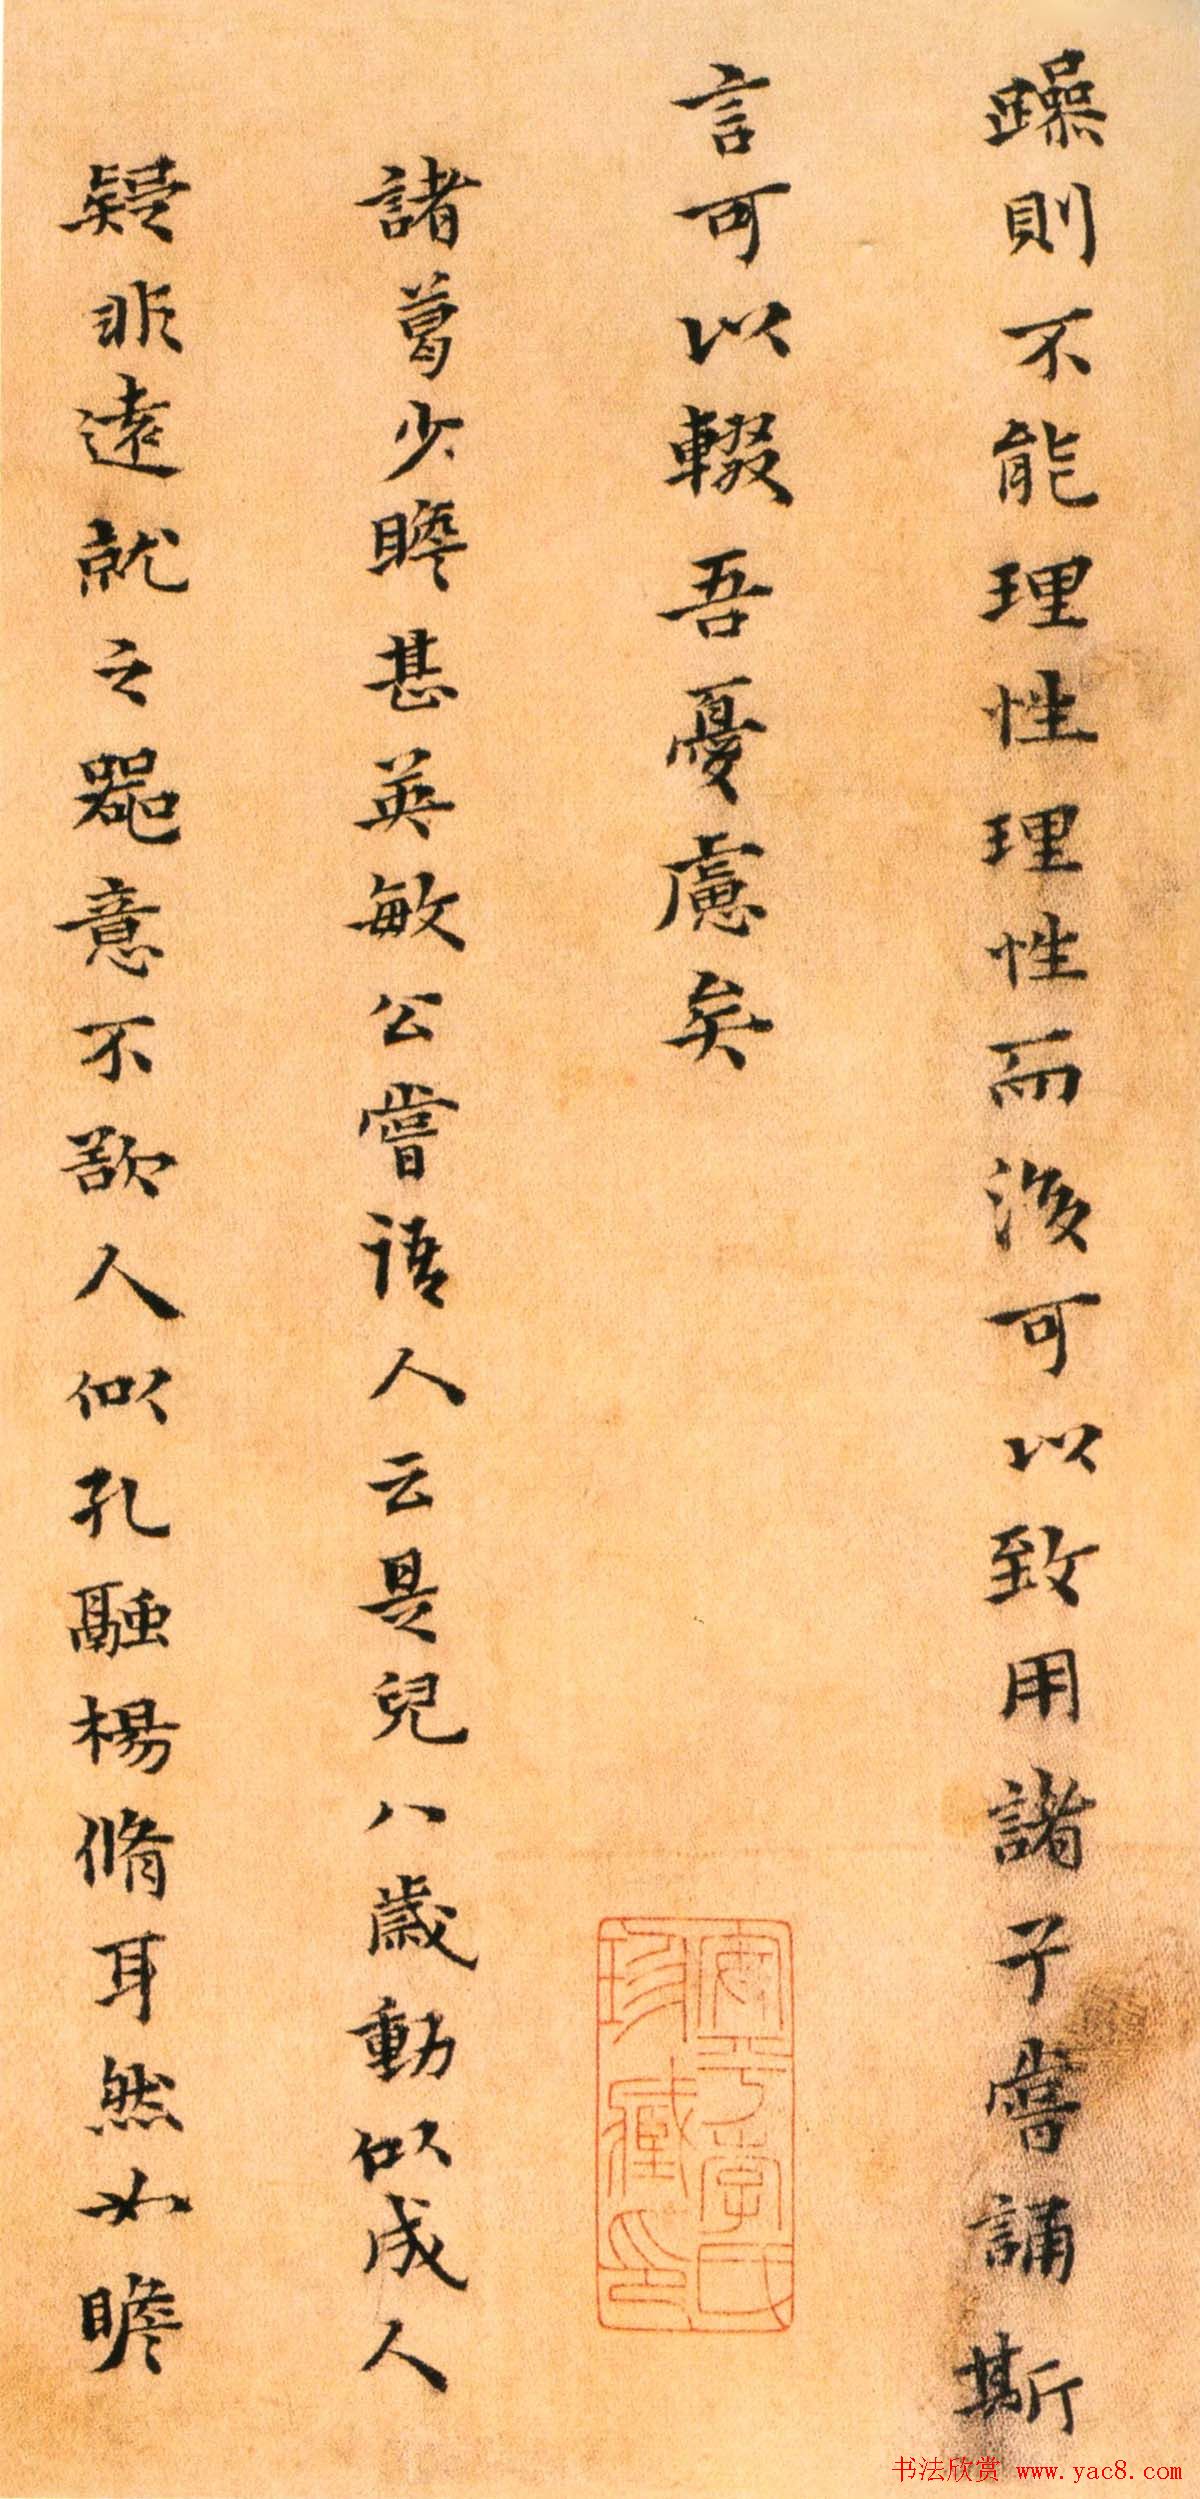 躁則不能理性理性而後可以致用諸子嘗誦斯
言可以輟吾憂慮矣
氏
珍藏印
諸葛少瞻甚英敏公嘗語人云是兒八歲動似成人
疑非遠就之器意不欲人似孔融楊脩耳然如瞻
书法欣赏 www.yac8.com